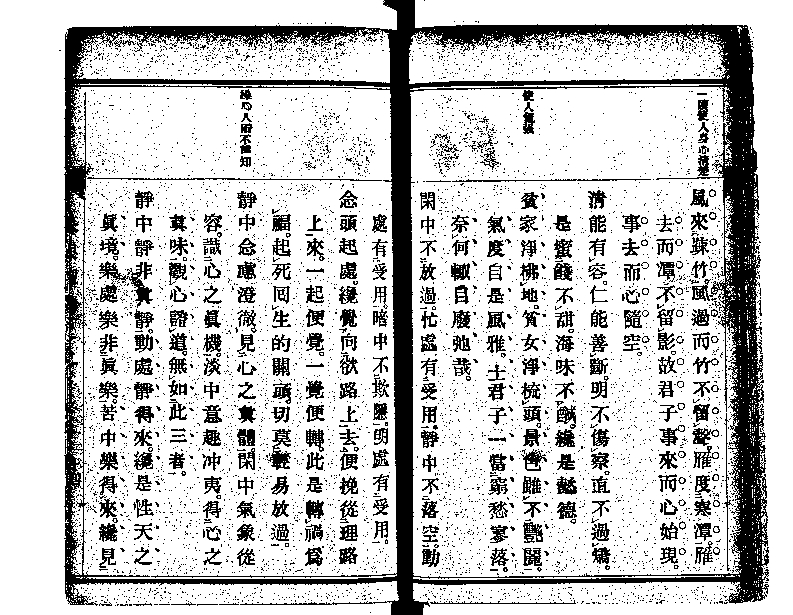 一讀使人身心清楚
風來疎竹。風過而竹不留聲。雁度寒潭。雁
去而潭不留影。故君子事來而心始現。
事去而心隨空。
清能有容。仁能善斷。明不傷察。直不過矯。
是蜜餞不甜。海味不鹹。纔是懿德。
使人奮張
貧家淨拂地。貧女淨梳頭。景色雖不艷麗。
氣度自是風雅。士君子一當窮愁寥落。
奈何輒自廢弛哉。
閑中不放過。忙處有受用。靜中不落空。動
處有受用。暗中不欺隱。明處有受用。
念頭起處。纔覺向欲路上去。便挽從理路
上來。一起便覺。一覺便轉。此是轉禍爲
福。起死回生的關頭。切莫輕易放過。
靜中念慮澄徹。見心之眞體。閑中氣象從
容。識心之眞機。淡中意趣冲夷。得心之
眞味。觀心證道。無如此三者。
靜中靜非眞靜。動處靜得來。纔是性天之
眞境。樂處樂非眞樂。苦中樂得來。纔見